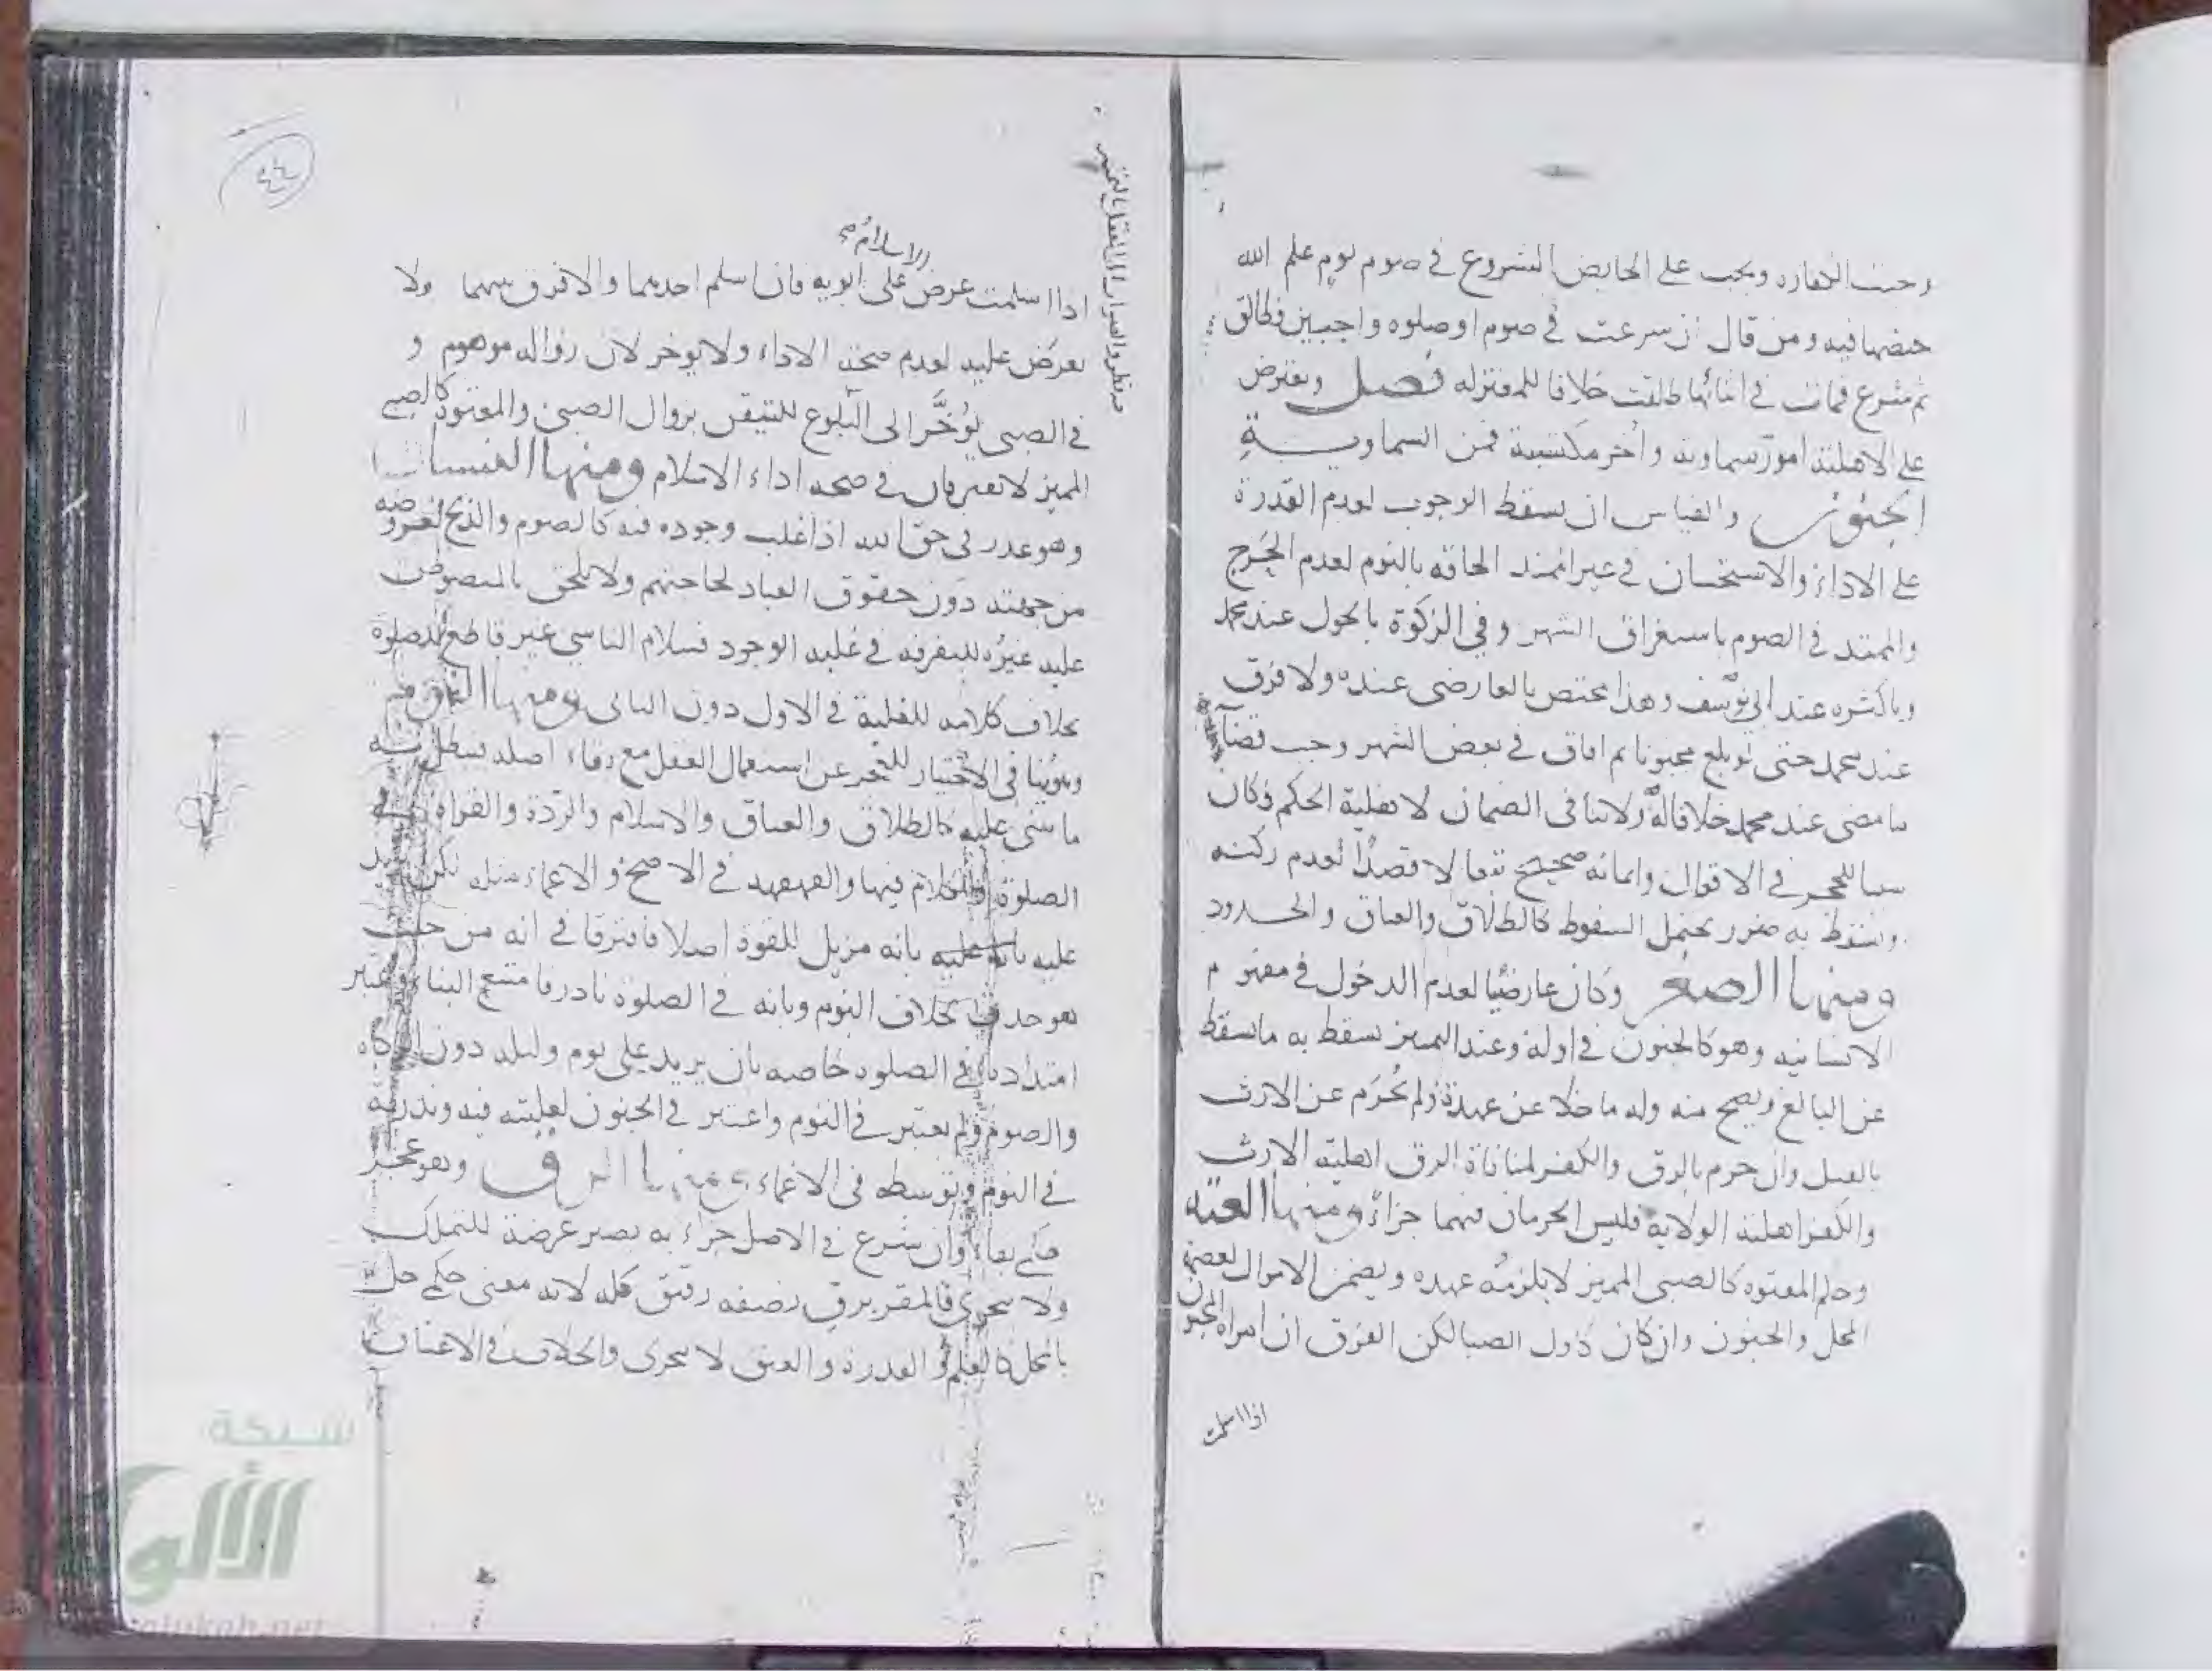 وجبت الكفاره ويجب على الحايض الشروع في صوم يوم علم الله
حيضها فيه ومن قال ان شرعت في صوم او صلوه واجبين فطالق
ثم شرع فمات في اثنائها طلقت خلافا للمعتزله فصل ويعترض
على الاهلية امور سماويه واخر مكتسبة فمن السماوية
الجنون والقياس ان يسقط الوجوب لعدم القدرة
على الاداء والاستحسان في غير الممتد الحاقه بالنوم لعدم الحرج
والممتد في الصوم باستغراق الشهر وفي الزكوة بالحول عند محمد
وباكثره عند ابي يوسف وهذا مختص بالعارضي عنده ولا فرق
عند محمد حتى لو بلغ مجنونا ثم افاق في بعض الشهر وجب قضآ
ما مضى عند محمد خلافا له ولا ينافى الضمان لاهلية الحكم وكان
سببا للحجر في الاقوال وايمانه صحيح تبعا لا قصدًا لعدم ركنه
ويسقط به ضرر يحتمل السقوط كالطلاق والعتاق والحدود
ومنها الصغر وكان عارضيًا لعدم الدخول في مفهوم
الانسانيه وهو كالجنون في اوله وعند التمييز يسقط به ما سقط
عن البالغ ويصح منه وله ما خلا عن عهدة ولم يُحرَم عن الارث
بالقتل وان حرم بالرق والكفر لمنافاة الرق اهلية الارث
والكفر اهلية الولاية فليس الحرمان فيهما جزاءً ومنها العته
وحكم المعتوه كالصبي المميز لا يلزمه عهده ويضمن الاموال لعصمة
المحل والجنون وان كان كاول الصبا لكن الفرق ان امراة المجنون
اذا اسلمت
٤٤
الاسلام صح
اذا اسلمت عرض على ابويه فان اسلم احدهما والا فرق بينهما ولا
يعرض عليه لعدم صحة الاداء ولا يوخر لان زواله موهوم و
في الصبي يُؤخَّر الى البلوغ للتيقن بزوال الصبي والمعتوه كالصبي
المميز لا يفترقان في صحة اداء الاسلام ومنها النسيان
وهو عذر في حق الله اذا غلب وجوده فيه كالصوم والذبح لعروضه
من جهته دون حقوق العباد لحاجتهم ولا يلحق بالمنصوص
عليه غيرُه للتفرقه في غلبة الوجود فسلام الناسي غير قاطع للصلوة
بخلاف كلامه للغلبة في الاول دون الثاني ومنها النوم
وهو ينافي الاختيار للعجز عن استعمال العقل مع بقاء اصله فبطل به
ما بني عليه كالطلاق والعتاق والاسلام والردة والقراه في
الصلوة والكلام فيها والقهقهه في الاصح والاغماء مثله لكن يزيد
عليه بانه مزيل للقوة اصلا فافترقا في انه من حيث
هو حدث بخلاف النوم وبانه في الصلوة نادر فامتنع البناء واعتبر
امتداده في الصلوه خاصه بان يزيد على يوم وليلة دون الزكاه
والصوم ولم يعتبر في النوم واعتبر في الجنون لغلبته فيه وندرته
في النوم وتوسطه في الاغماء ومنها الرق وهو عجز
حكمي بقاء وان شرع في الاصل جزاء به يصير عرضة للتملك
ولا يتجزى فالمقر برق نصفه رقيق كله لانه معنى حكمي حل
بالمحل كالعلم والقدرة والعتق لا يتجزى والخلاف في الاعتاق